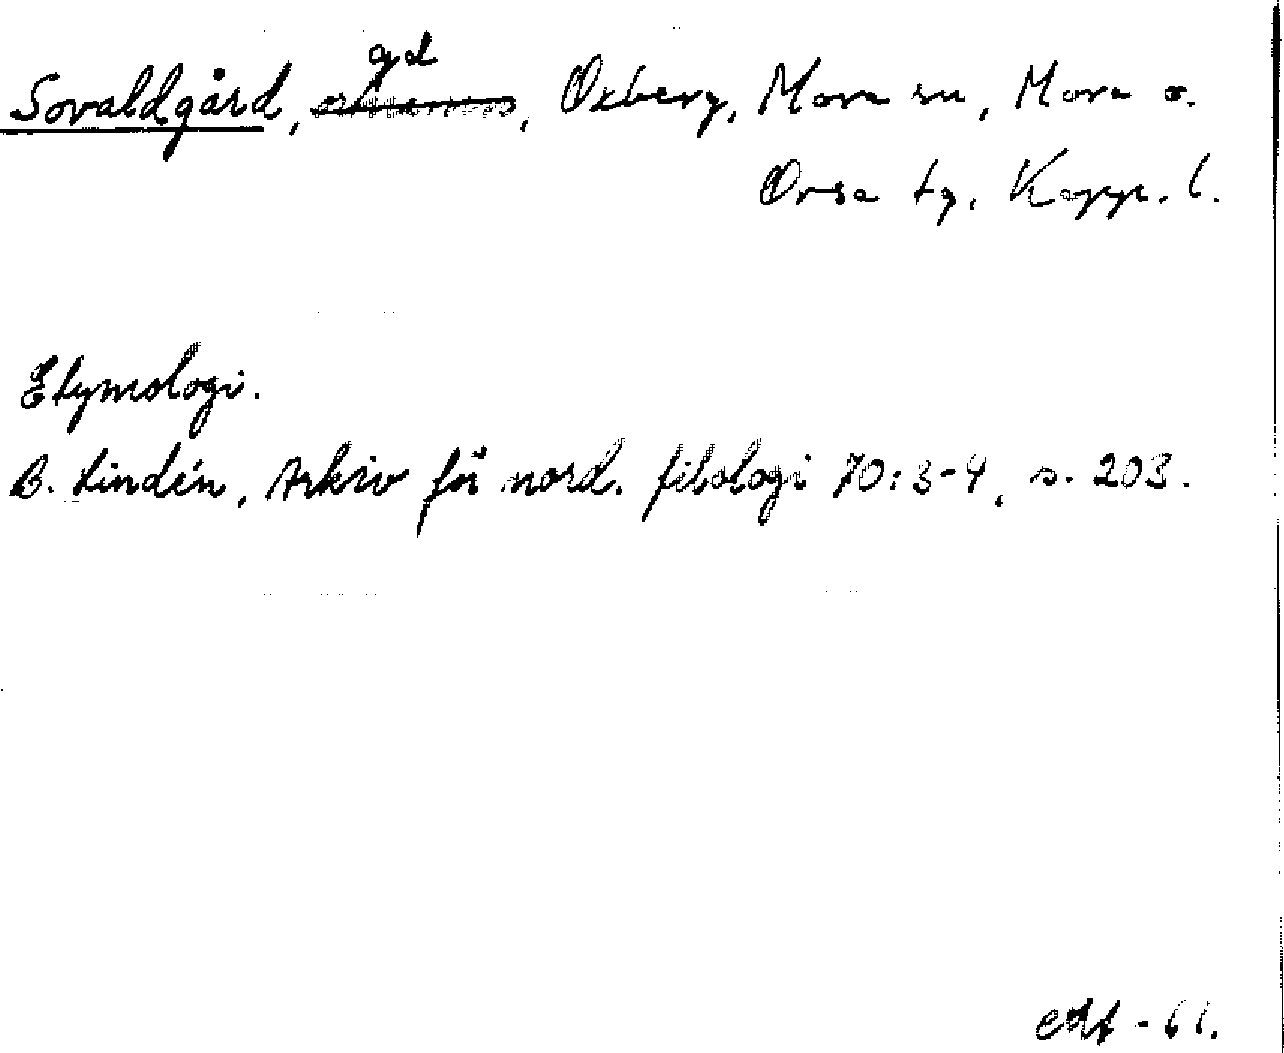 Sovaldgård, gd, Oxberg, Mora sn, Mora o.
Orsa tg, Kopp. l.
Etymologi.
B. Lindén, Arkiv för nord. filologi 70:3-4, s. 203.
-61.